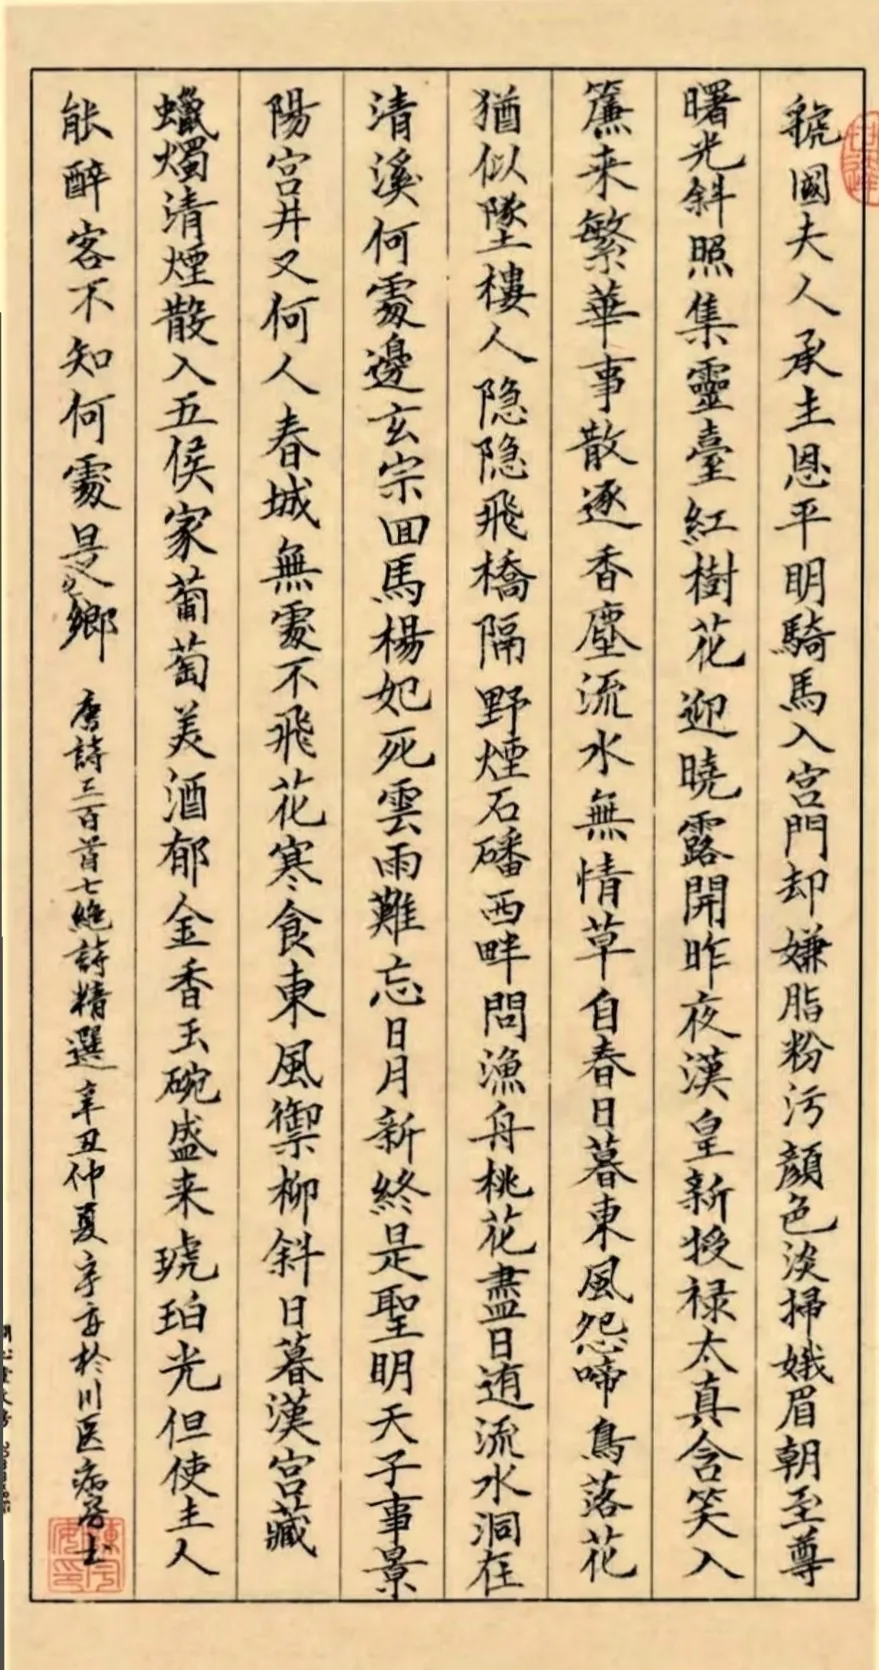 虢國夫人承主恩平明騎馬入宮門却嫌脂粉污顏色淡掃娥眉朝至尊
曙光斜照集靈臺紅樹花迎曉露開昨夜漢皇新授禄太真含笑入
簾来繁華事散逐香塵流水無情草自春日暮東風怨啼鳥落花
猶似墜樓人隐隐飛橋隔野煙石磻西畔問漁舟桃花盡日迶流水洞在
清溪何處邊玄宗回馬楊妃死雲雨難忘日月新終是聖明天子事景
陽宮井又何人春城無處不飛花寒食東風禦柳斜日暮漢宮藏
蠟燭清煙散入五侯家葡萄美酒郁金香玉碗盛来琥珀光但使主人
能醉客不知何處是他鄉 唐詩三百首七絕詩精選 辛丑仲夏 於川医病房